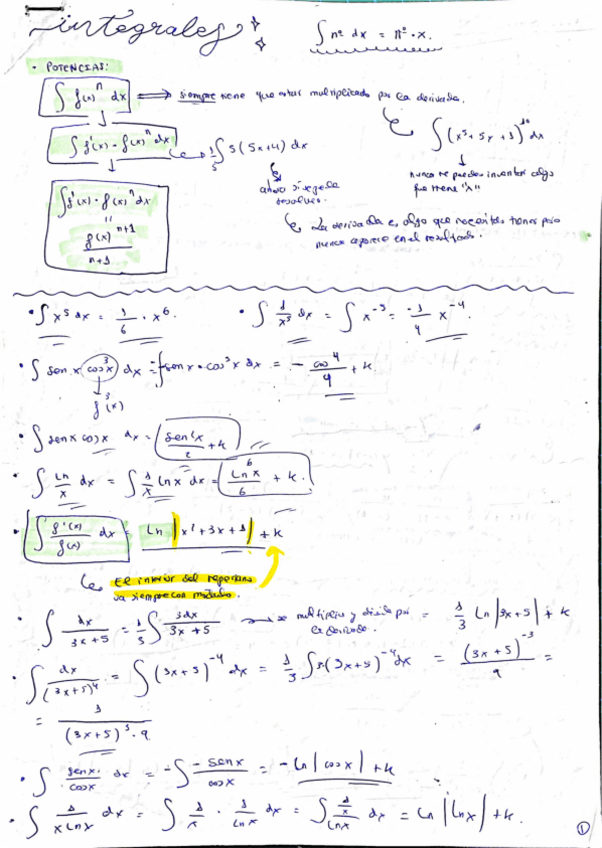 integrales
∫ π² dx = π² · x.
• POTENCIAS:
∫ f(x)ⁿ dx ⟹ siempre tiene que estar multiplicado por la derivada.
∫ f'(x) · f(x)ⁿ dx
1/5 ∫ 5(5x+4) dx
∫ (x⁵ + 5x + 1)¹⁰ dx
ahora sí regla
nunca te puedes inventar algo
que tiene "x"
∫ f'(x) · f(x)ⁿ dx
=
f(x)ⁿ⁺¹ / n+1
La derivada es algo que necesitas tener pero
nunca aparece en el resultado.
• ∫ x⁵ dx = 1/6 · x⁶
• ∫ 1/x⁵ dx = ∫ x⁻⁵ = -1/4 x⁻⁴
• ∫ sen x cos³x dx = -∫ -sen x · cos³ x dx = - cos⁴/4 + k
f³(x)
• ∫ sen x cos x dx = sen²x/2 + k
• ∫ ln/x dx = ∫ 1/x ln x⁵ dx = ln⁶x/6 + k.
• ∫ f'(x)/f(x) dx = ln |x² + 3x + 1| + k
El interior del neperiano
va siempre con módulo.
• ∫ dx/3x+5 = 1/3 ∫ 3dx/3x+5 → multiplico y divido por = 1/3 ln |3x+5| + k
la derivada.
• ∫ dx/(3x+5)⁴ = ∫ (3x+5)⁻⁴ dx = 1/3 ∫ 3(3x+5)⁻⁴ dx = (3x+5)⁻³/9 =
= 1/(3x+5)³ · 9
• ∫ sen x/cos x dx = -∫ -sen x/cos x = -ln |cos x| + k
• ∫ 1/x ln x dx = ∫ 1/x · 1/ln x dx = ∫ (1/x)/ln x dx = ln |ln x| + k.
1